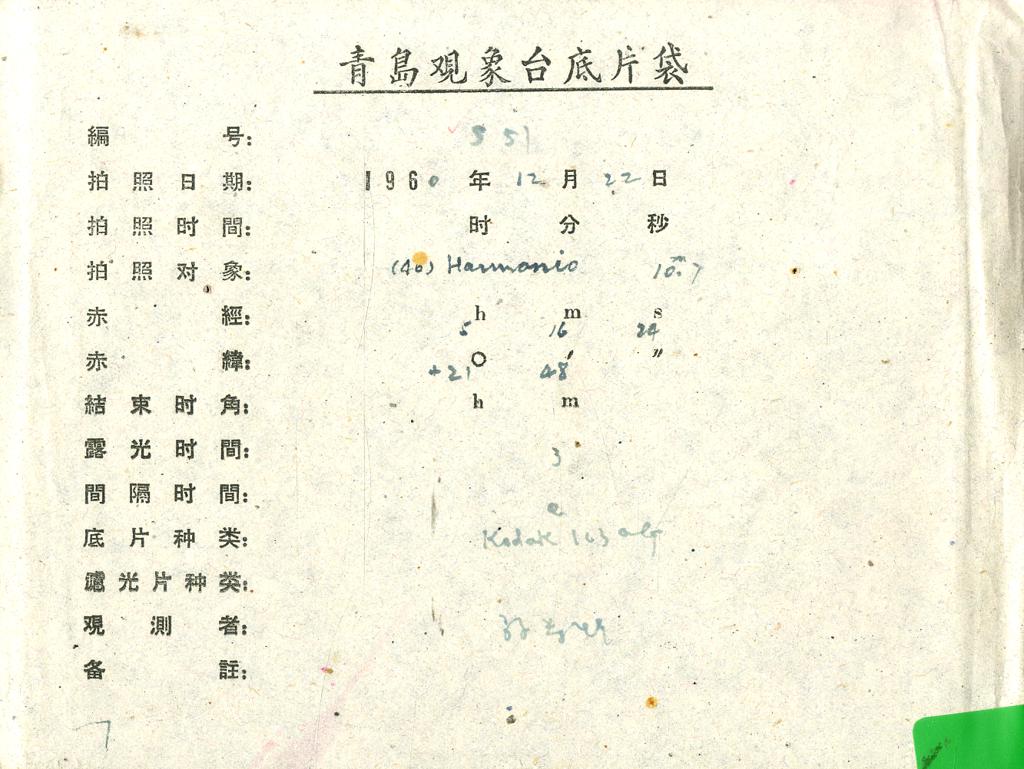 青島观象台底片袋
編 号: 5 51
拍照日期: 1960 年 12 月 22 日
拍照时間: 时 分 秒
拍照对象: (40) Harmonio 10.ᵐ7
赤 經: 5 h 16 m 24 s
赤 緯: +21° 48′ ″
結束时角: h m
露光时間: 3
間隔时間:
底片种类: Kodak
濾光片种类:
观測者:
备 註:
7